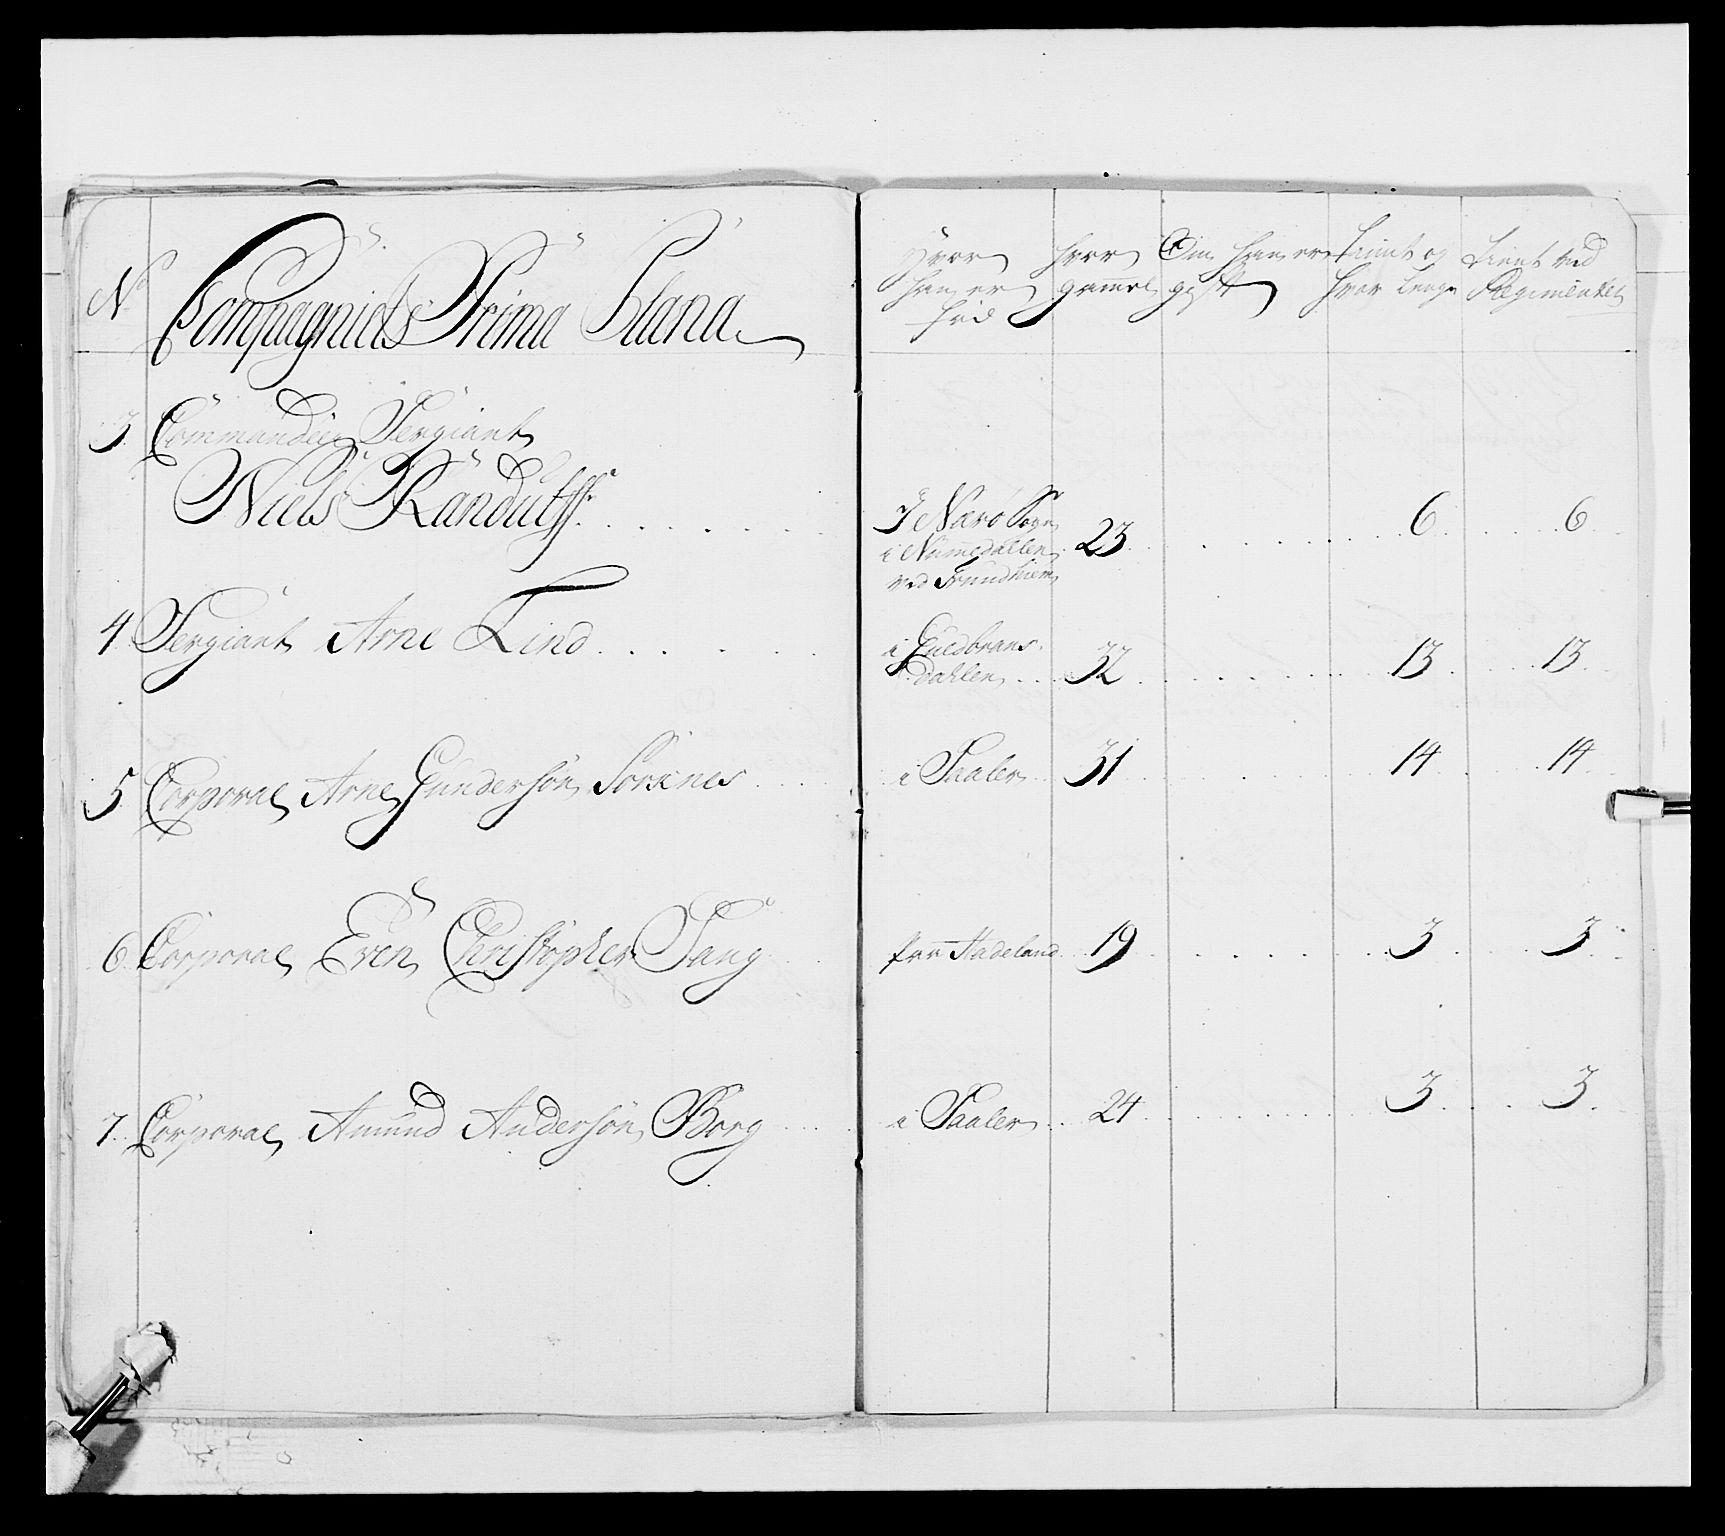 No Compagniets Prima Plana
Hvor han er fød
hvor gammel
Om han er gift
Tient og hvor lenge
Tient ved Regimentet
3 Commandeer Sergiant
Niels Randulff
I Nærø Sogn
i Nummedallen
ved Trundhiem
23 6 6
4 Sergiant Arne Lind
i Guldbrans-
dahlen 32 13 13
5 Corporal Arne Gundersøn Sorknes i Saaler 31 14 14
6 Corporal Even Christopher Sang fra Hadeland 19 3 3
7 Corporal Amund Andersøn Borg i Saaler 24 3 3